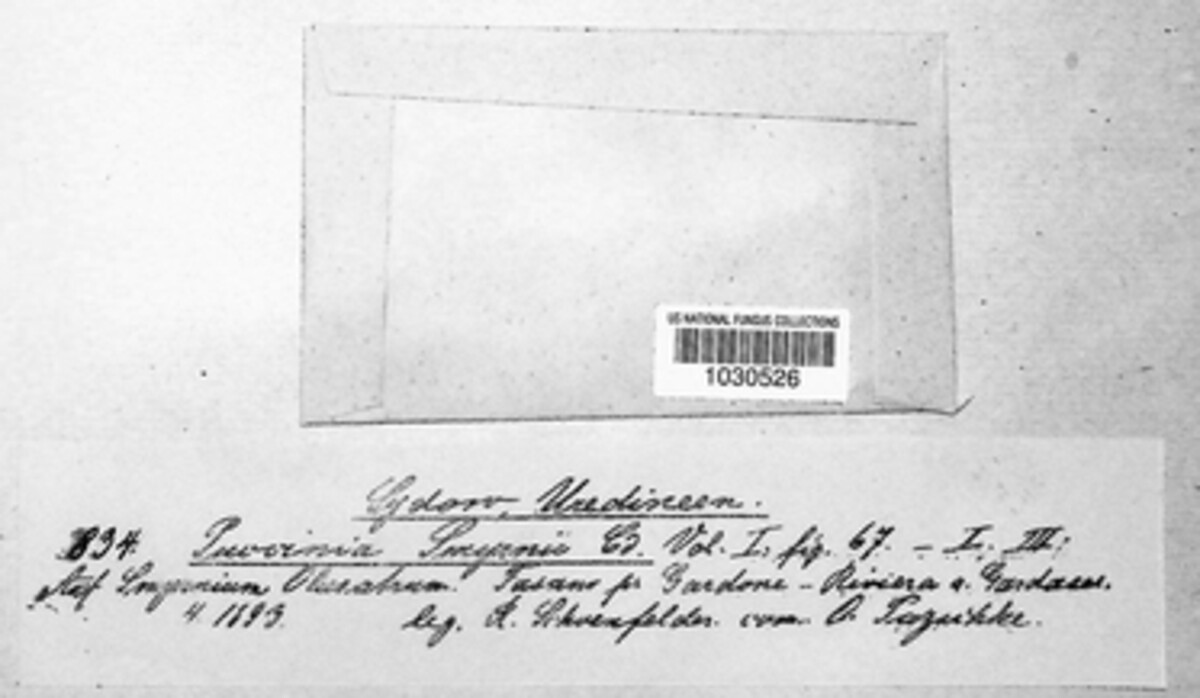 US NATIONAL FUNGUS COLLECTIONS
1030526
Sydow, Uredineen.
834. Puccinia Smyrnii Cd. Vol. I. fig. 67. – I. III;
Auf Smyrnium Olusatrum. Fasano pr Gardone – Riviera a. Gardasee.
4. 1893. leg. R. com. O.